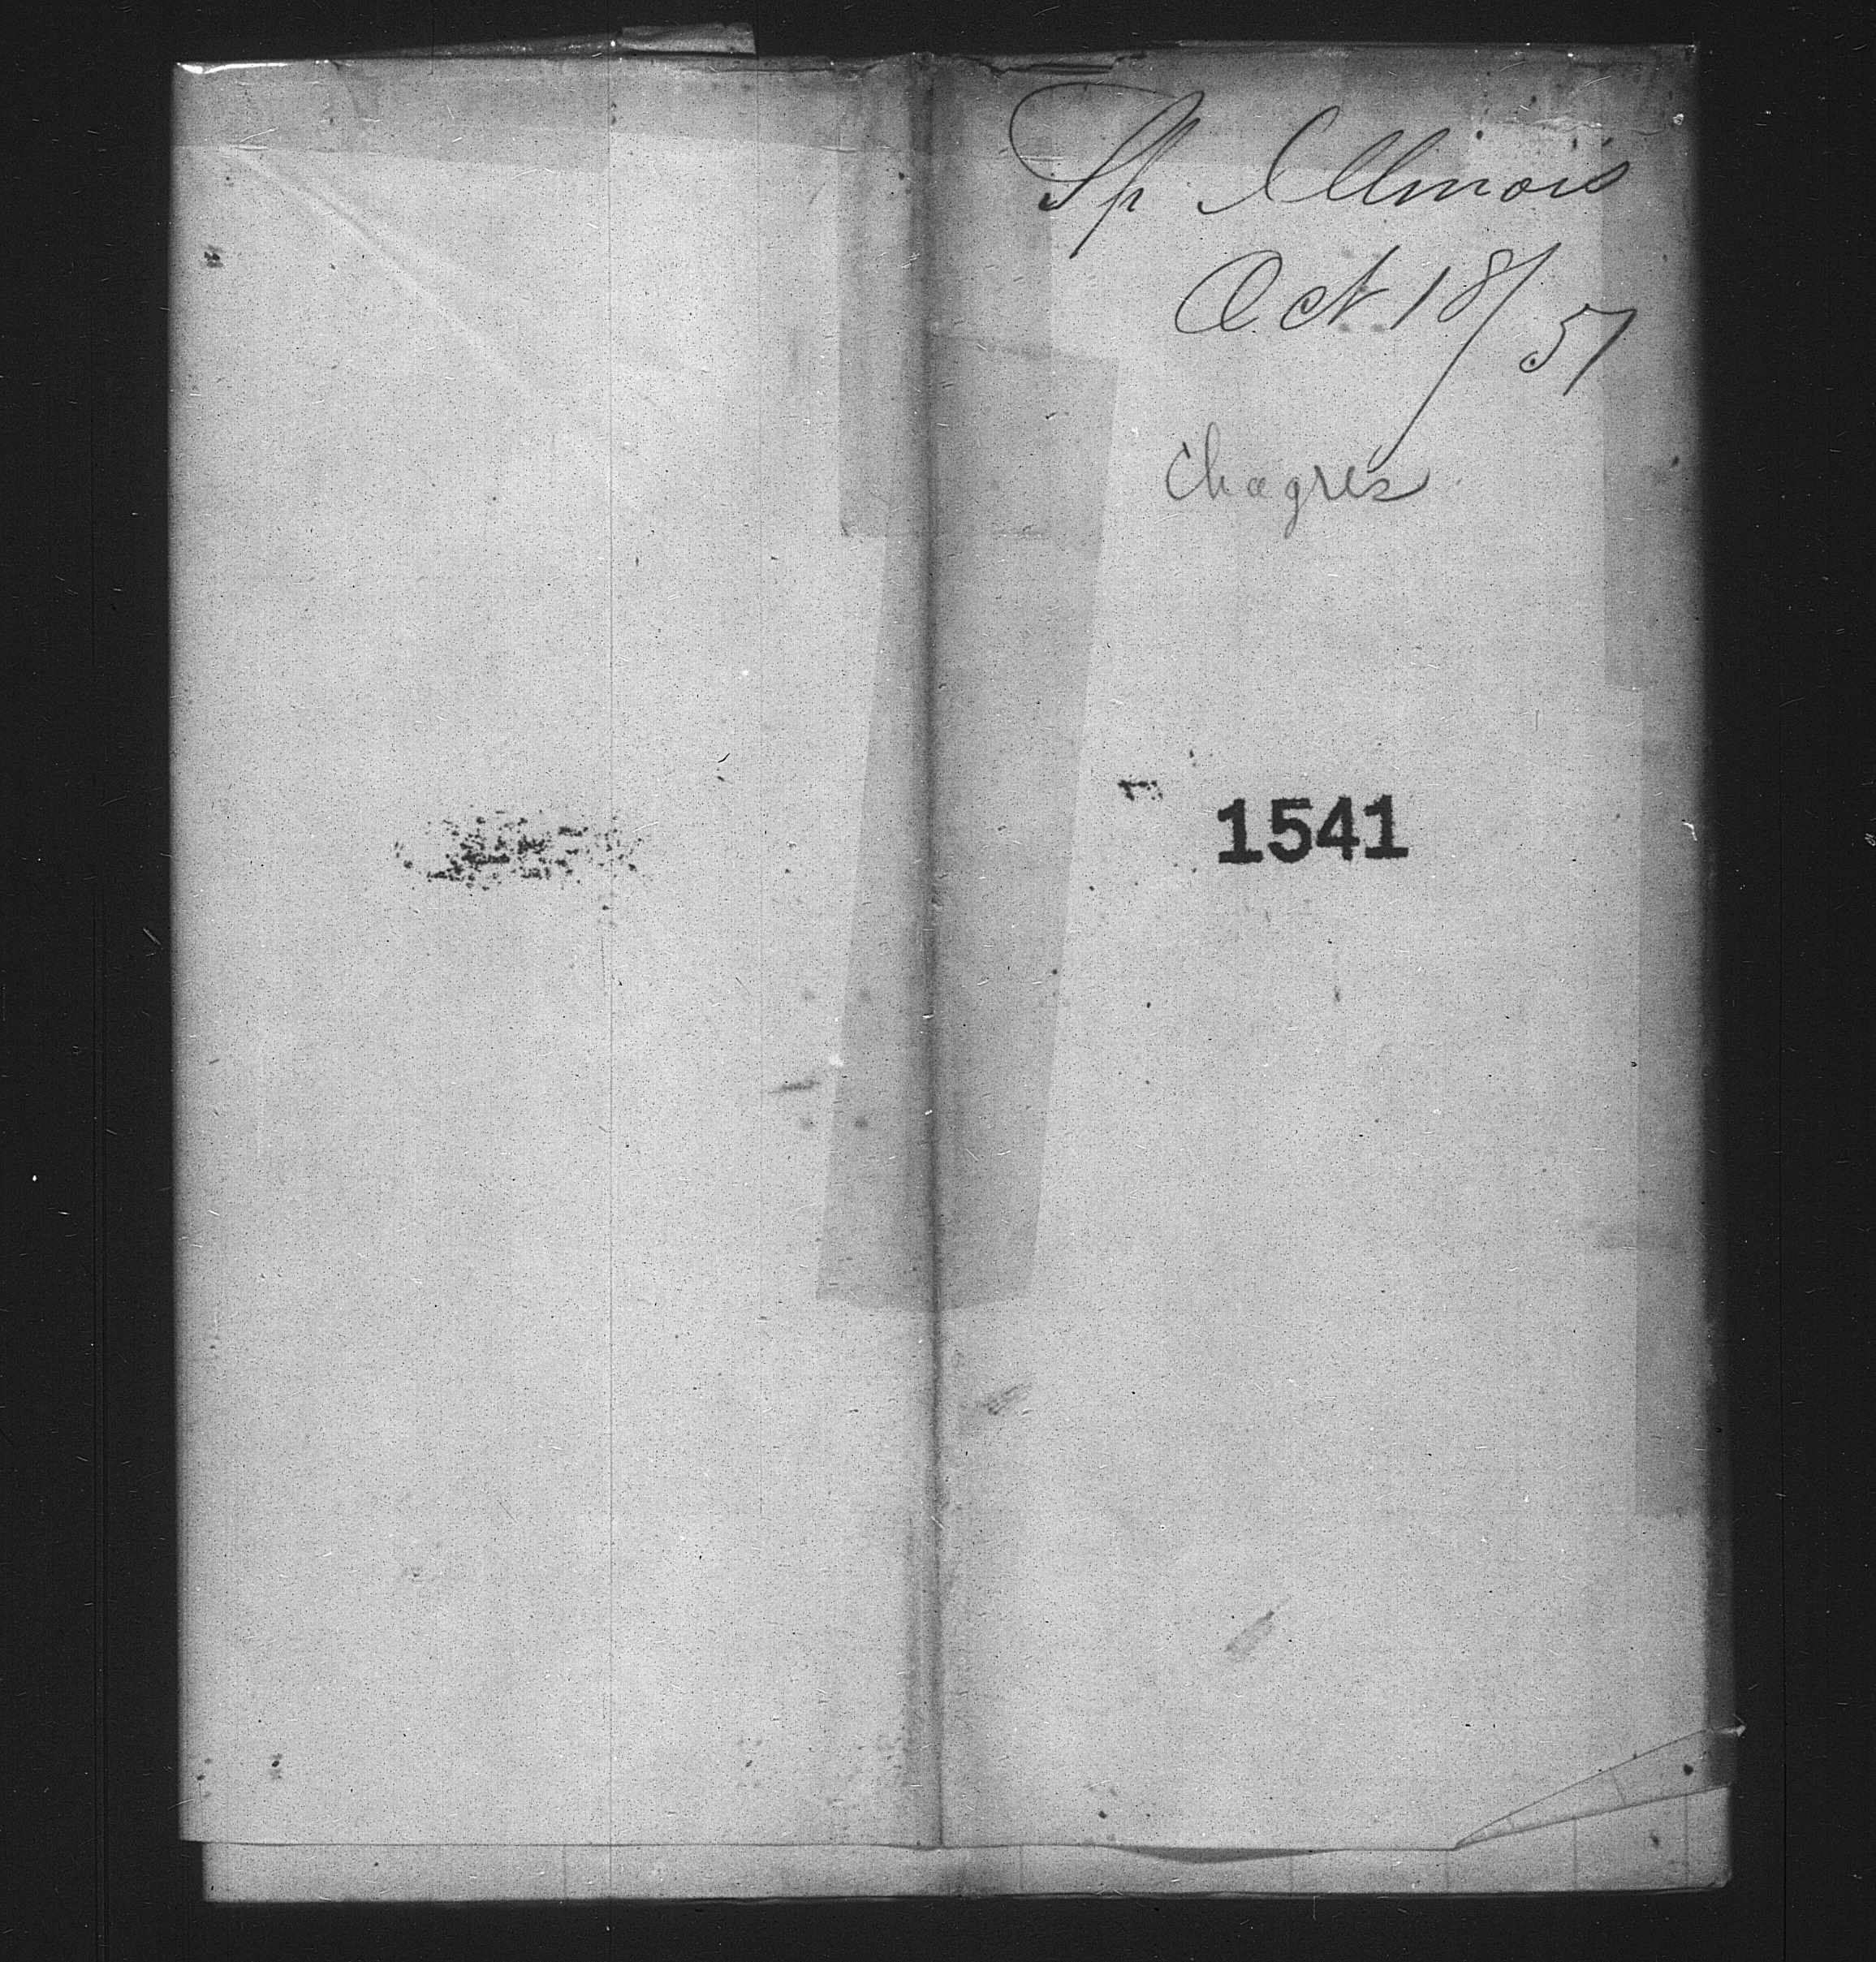 Sp Illinois
Oct 18/51
Chagres
1541